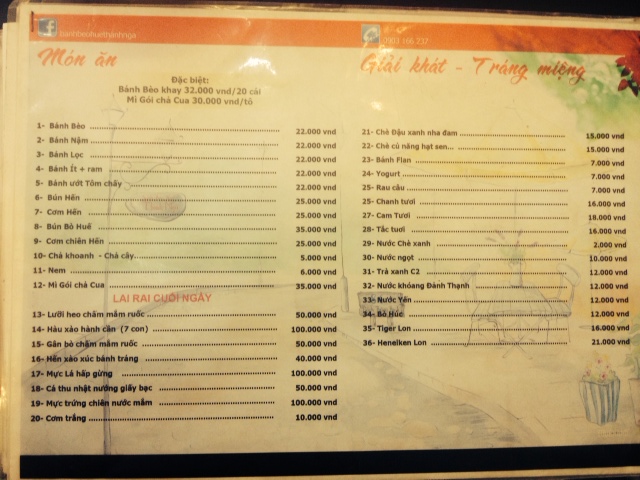 banhbeohuethanhnga
0903 166 237
Món ăn
Giải khát - Tráng miệng
Đặc biệt:
Bánh Bèo khay 32.000 vnd/20 cái
Mì Gói chả Cua 30.000 vnd/tô
1- Bánh Bèo 22.000 vnd
2- Bánh Nậm 22.000 vnd
3- Bánh Lọc 22.000 vnd
4- Bánh Ít + ram 22.000 vnd
5- Bánh ướt Tôm chấy 22.000 vnd
6- Bún Hến 25.000 vnd
7- Cơm Hến 25.000 vnd
8- Bún Bò Huế 35.000 vnd
9- Cơm chiên Hến 25.000 vnd
10- Chả khoanh - Chả cây 5.000 vnd
11- Nem 6.000 vnd
12- Mì Gói chả Cua 35.000 vnd
LAI RAI CUỐI NGÀY
13- Lưỡi heo chấm mắm ruốc 50.000 vnd
14- Hàu xào hành cần (7 con) 100.000 vnd
15- Gân bò chấm mắm ruốc 50.000 vnd
16- Hến xào xúc bánh tráng 40.000 vnd
17- Mực Lá hấp gừng 100.000 vnd
18- Cá thu nhật nướng giấy bạc 50.000 vnd
19- Mực trứng chiên nước mắm 100.000 vnd
20- Cơm trắng 10.000 vnd
21- Chè Đậu xanh nha đam 15.000 vnd
22- Chè củ năng hạt sen... 15.000 vnd
23- Bánh Flan 7.000 vnd
24- Yogurt 7.000 vnd
25- Rau câu 7.000 vnd
25- Chanh tươi 16.000 vnd
27- Cam Tươi 18.000 vnd
28- Tắc tươi 16.000 vnd
29- Nước Chè xanh 2.000 vnd
30- Nước ngọt 10.000 vnd
31- Trà xanh C2 12.000 vnd
32- Nước khoáng Đảnh Thạnh 12.000 vnd
33- Nước Yến 12.000 vnd
34- Bò Húc 12.000 vnd
35- Tiger Lon 16.000 vnd
36- Heneiken Lon 21.000 vnd